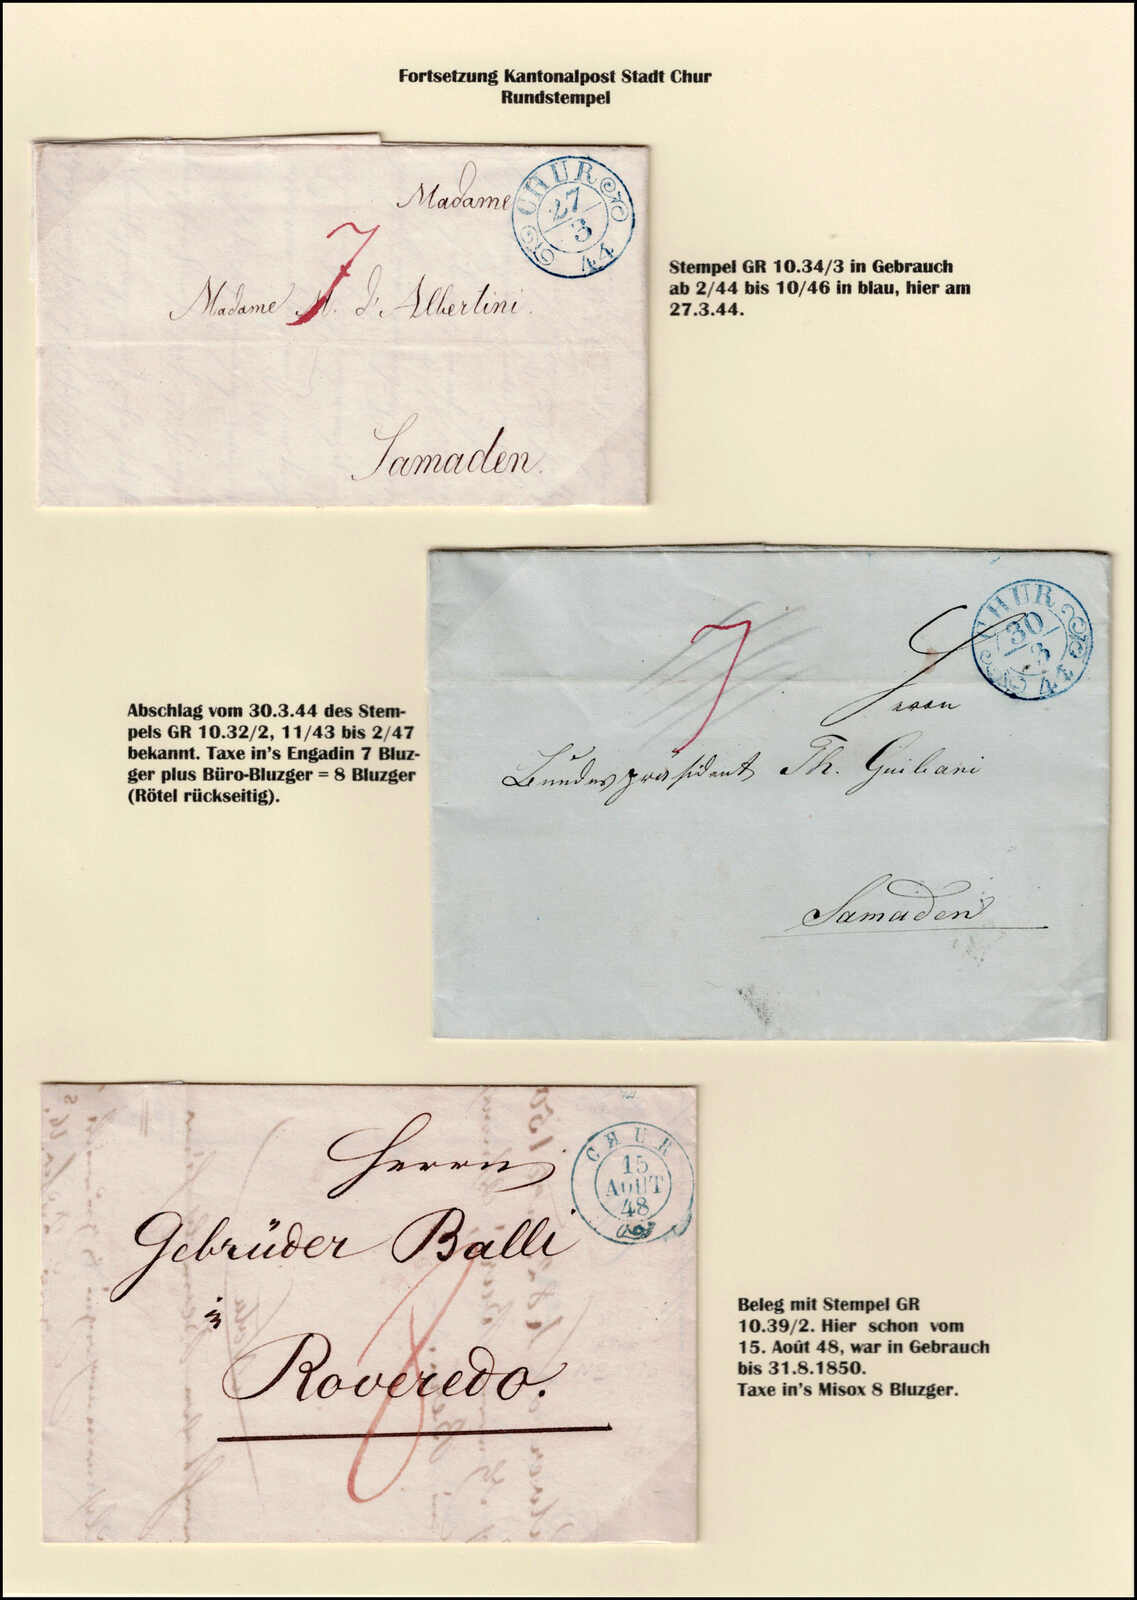 Fortsetzung Kantonalpost Stadt Chur
Rundstempel
Madame
CHUR
27
3
44
7
Madame M. d'Albertini.
Samaden.
Stempel GR 10.34/3 in Gebrauch
ab 2/44 bis 10/46 in blau, hier am
27.3.44.
CHUR
30
3
44
7
Herrn
Bundespräsident Th. Guibani
Samaden
Abschlag vom 30.3.44 des Stem-
pels GR 10.32/2, 11/43 bis 2/47
bekannt. Taxe in's Engadin 7 Bluz-
ger plus Büro-Bluzger = 8 Bluzger
(Rötel rückseitig).
CHUR
15
AOUT
48
Herrn
Gebrüder Balli
in
Roveredo.
8
Beleg mit Stempel GR
10.39/2. Hier schon vom
15. Août 48, war in Gebrauch
bis 31.8.1850.
Taxe in's Misox 8 Bluzger.